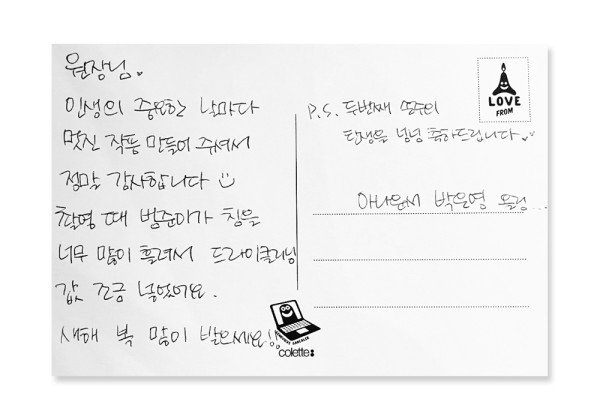 원장님♥
인생의 중요한 날마다
멋진 작품 만들어 주셔서
정말 감사합니다 ☺
촬영 때 범준이가 침을
너무 많이 흘려서 드라이클리닝
값 조금 넣었어요.
새해 복 많이 받으세요!!
P.S. 두번째 공주의
탄생을 넘넘 축하드립니다♥♥
아나운서 박은영 올림...
LOVE
FROM
colette: